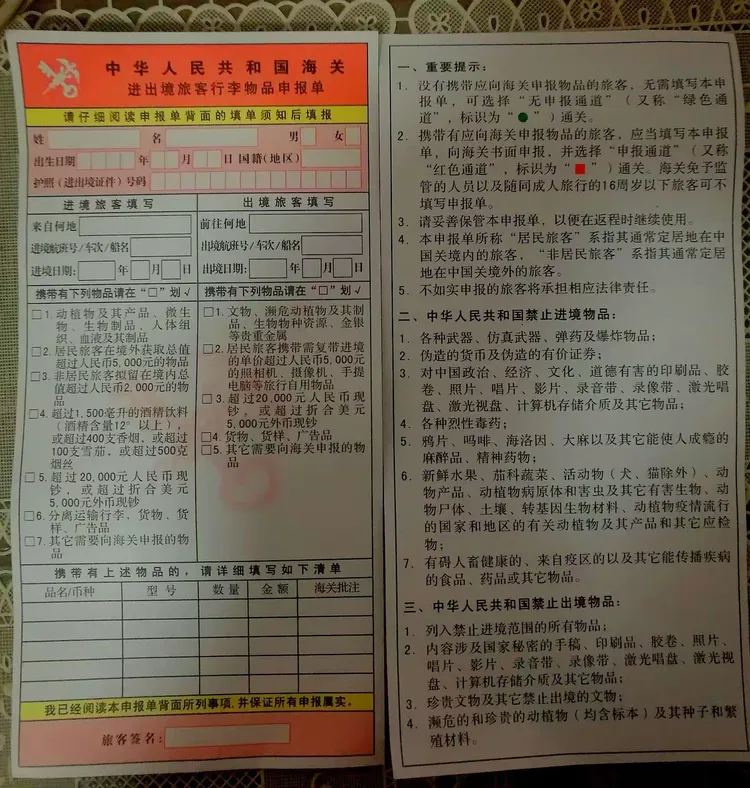 中华人民共和国海关
进出境旅客行李物品申报单
请仔细阅读申报单背面的填单须知后填报
姓 名 男 女
出生日期 年 月 日 国籍(地区)
护照(进出境证件)号码
进境旅客填写
来自何地
进境航班号/车次/船名
进境日期: 年 月 日
携带有下列物品请在“□”划√
□1.动植物及其产品、微生
物、生物制品、人体组
织、血液及其制品
□2.居民旅客在境外获取总值
超过人民币5,000元的物品
□3.非居民旅客拟留在境内总
值超过人民币2,000元的物
品
□4.超过1,500毫升的酒精饮料
(酒精含量12°以上),
或超过400支香烟,或超过
100支雪茄,或超过500克
烟丝
□5.超过20,000元人民币现
钞,或超过折合美元
5,000元外币现钞
□6.分离运输行李、货物、货
样、广告品
□7.其它需要向海关申报的物
品
出境旅客填写
前往何地
出境航班号/车次/船名
出境日期: 年 月 日
携带有下列物品请在“□”划√
□1.文物、濒危动植物及其制
品、生物物种资源、金银
等贵重金属
□2.居民旅客携带需复带进境
的单价超过人民币5,000元
的照相机、摄像机、手提
电脑等旅行自用物品
□3.超过20,000元人民币现
钞,或超过折合美元
5,000元外币现钞
□4.货物、货样、广告品
□5.其它需要向海关申报的物
品
携带有上述物品的,请详细填写如下清单
品名/币种 型号 数量 金额 海关批注
我已经阅读本申报单背面所列事项,并保证所有申报属实。
旅客签名:
一、重要提示:
1.没有携带应向海关申报物品的旅客,无需填写本申
报单,可选择“无申报通道”(又称“绿色通
道”,标识为“●”)通关。
2.携带有应向海关申报物品的旅客,应当填写本申报
单,向海关书面申报,并选择“申报通道”(又称
“红色通道”,标识为“■”)通关。海关免予监
管的人员以及随同成人旅行的16周岁以下旅客可不
填写申报单。
3.请妥善保管本申报单,以便在返程时继续使用。
4.本申报单所称“居民旅客”系指其通常定居地在中
国关境内的旅客,“非居民旅客”系指其通常定居
地在中国关境外的旅客。
5.不如实申报的旅客将承担相应法律责任。
二、中华人民共和国禁止进境物品:
1.各种武器、仿真武器、弹药及爆炸物品;
2.伪造的货币及伪造的有价证券;
3.对中国政治、经济、文化、道德有害的印刷品、胶
卷、照片、唱片、影片、录音带、录像带、激光唱
盘、激光视盘、计算机存储介质及其它物品;
4.各种烈性毒药;
5.鸦片、吗啡、海洛因、大麻以及其它能使人成瘾的
麻醉品、精神药物;
6.新鲜水果、茄科蔬菜、活动物(犬、猫除外)、动
物产品、动植物病原体和害虫及其它有害生物、动
物尸体、土壤、转基因生物材料、动植物疫情流行
的国家和地区的有关动植物及其产品和其它应检
物;
7.有碍人畜健康的、来自疫区的以及其它能传播疾病
的食品、药品或其它物品。
三、中华人民共和国禁止出境物品:
1.列入禁止进境范围的所有物品;
2.内容涉及国家秘密的手稿、印刷品、胶卷、照片、
唱片、影片、录音带、录像带、激光唱盘、激光视
盘、计算机存储介质及其它物品;
3.珍贵文物及其它禁止出境的文物;
4.濒危的和珍贵的动植物(均含标本)及其种子和繁
殖材料。